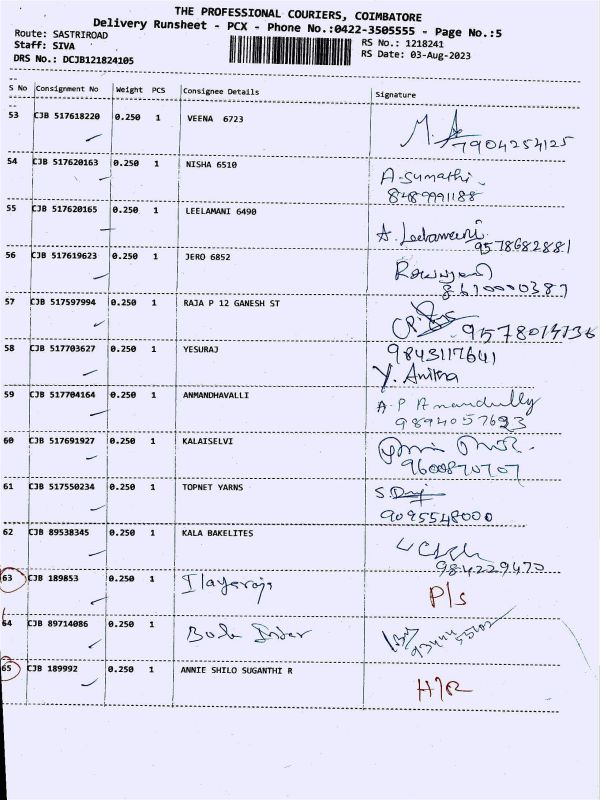 THE PROFESSIONAL COURIERS, COIMBATORE
Delivery Runsheet - PCX - Phone No.:0422-3505555 - Page No.:5
Route: SASTRIROAD
RS No.: 1218241
Staff: SIVA
RS Date: 03-Aug-2023
DRS No.: DCJB121824105
S No Consignment No Weight PCS Consignee Details Signature
53 CJB 517618220 0.250 1 VEENA 6723
M. A
7904254125
54 CJB 517620163 0.250 1 NISHA 6510
A. Sumathi
8489991188
55 CJB 517620165 0.250 1 LEELAMANI 6490
A. Leelamani
9578682881
56 CJB 517619623 0.250 1 JERO 6852
8610000387
57 CJB 517597994 0.250 1 RAJA P 12 GANESH ST
9578014136
58 CJB 517703627 0.250 1 YESURAJ
9843117641
Y. Anitha
59 CJB 517704164 0.250 1 ANMANDHAVALLI
A. P Anandhully
9894057623
60 CJB 517691927 0.250 1 KALAISELVI
9600870707
61 CJB 517550234 0.250 1 TOPNET YARNS
9095548000
62 CJB 89538345 0.250 1 KALA BAKELITES
984229470
63 CJB 189853 0.250 1 Ilayaraja
P/s
64 CJB 89714086 0.250 1
65 CJB 189992 0.250 1 ANNIE SHILO SUGANTHI R
H/R